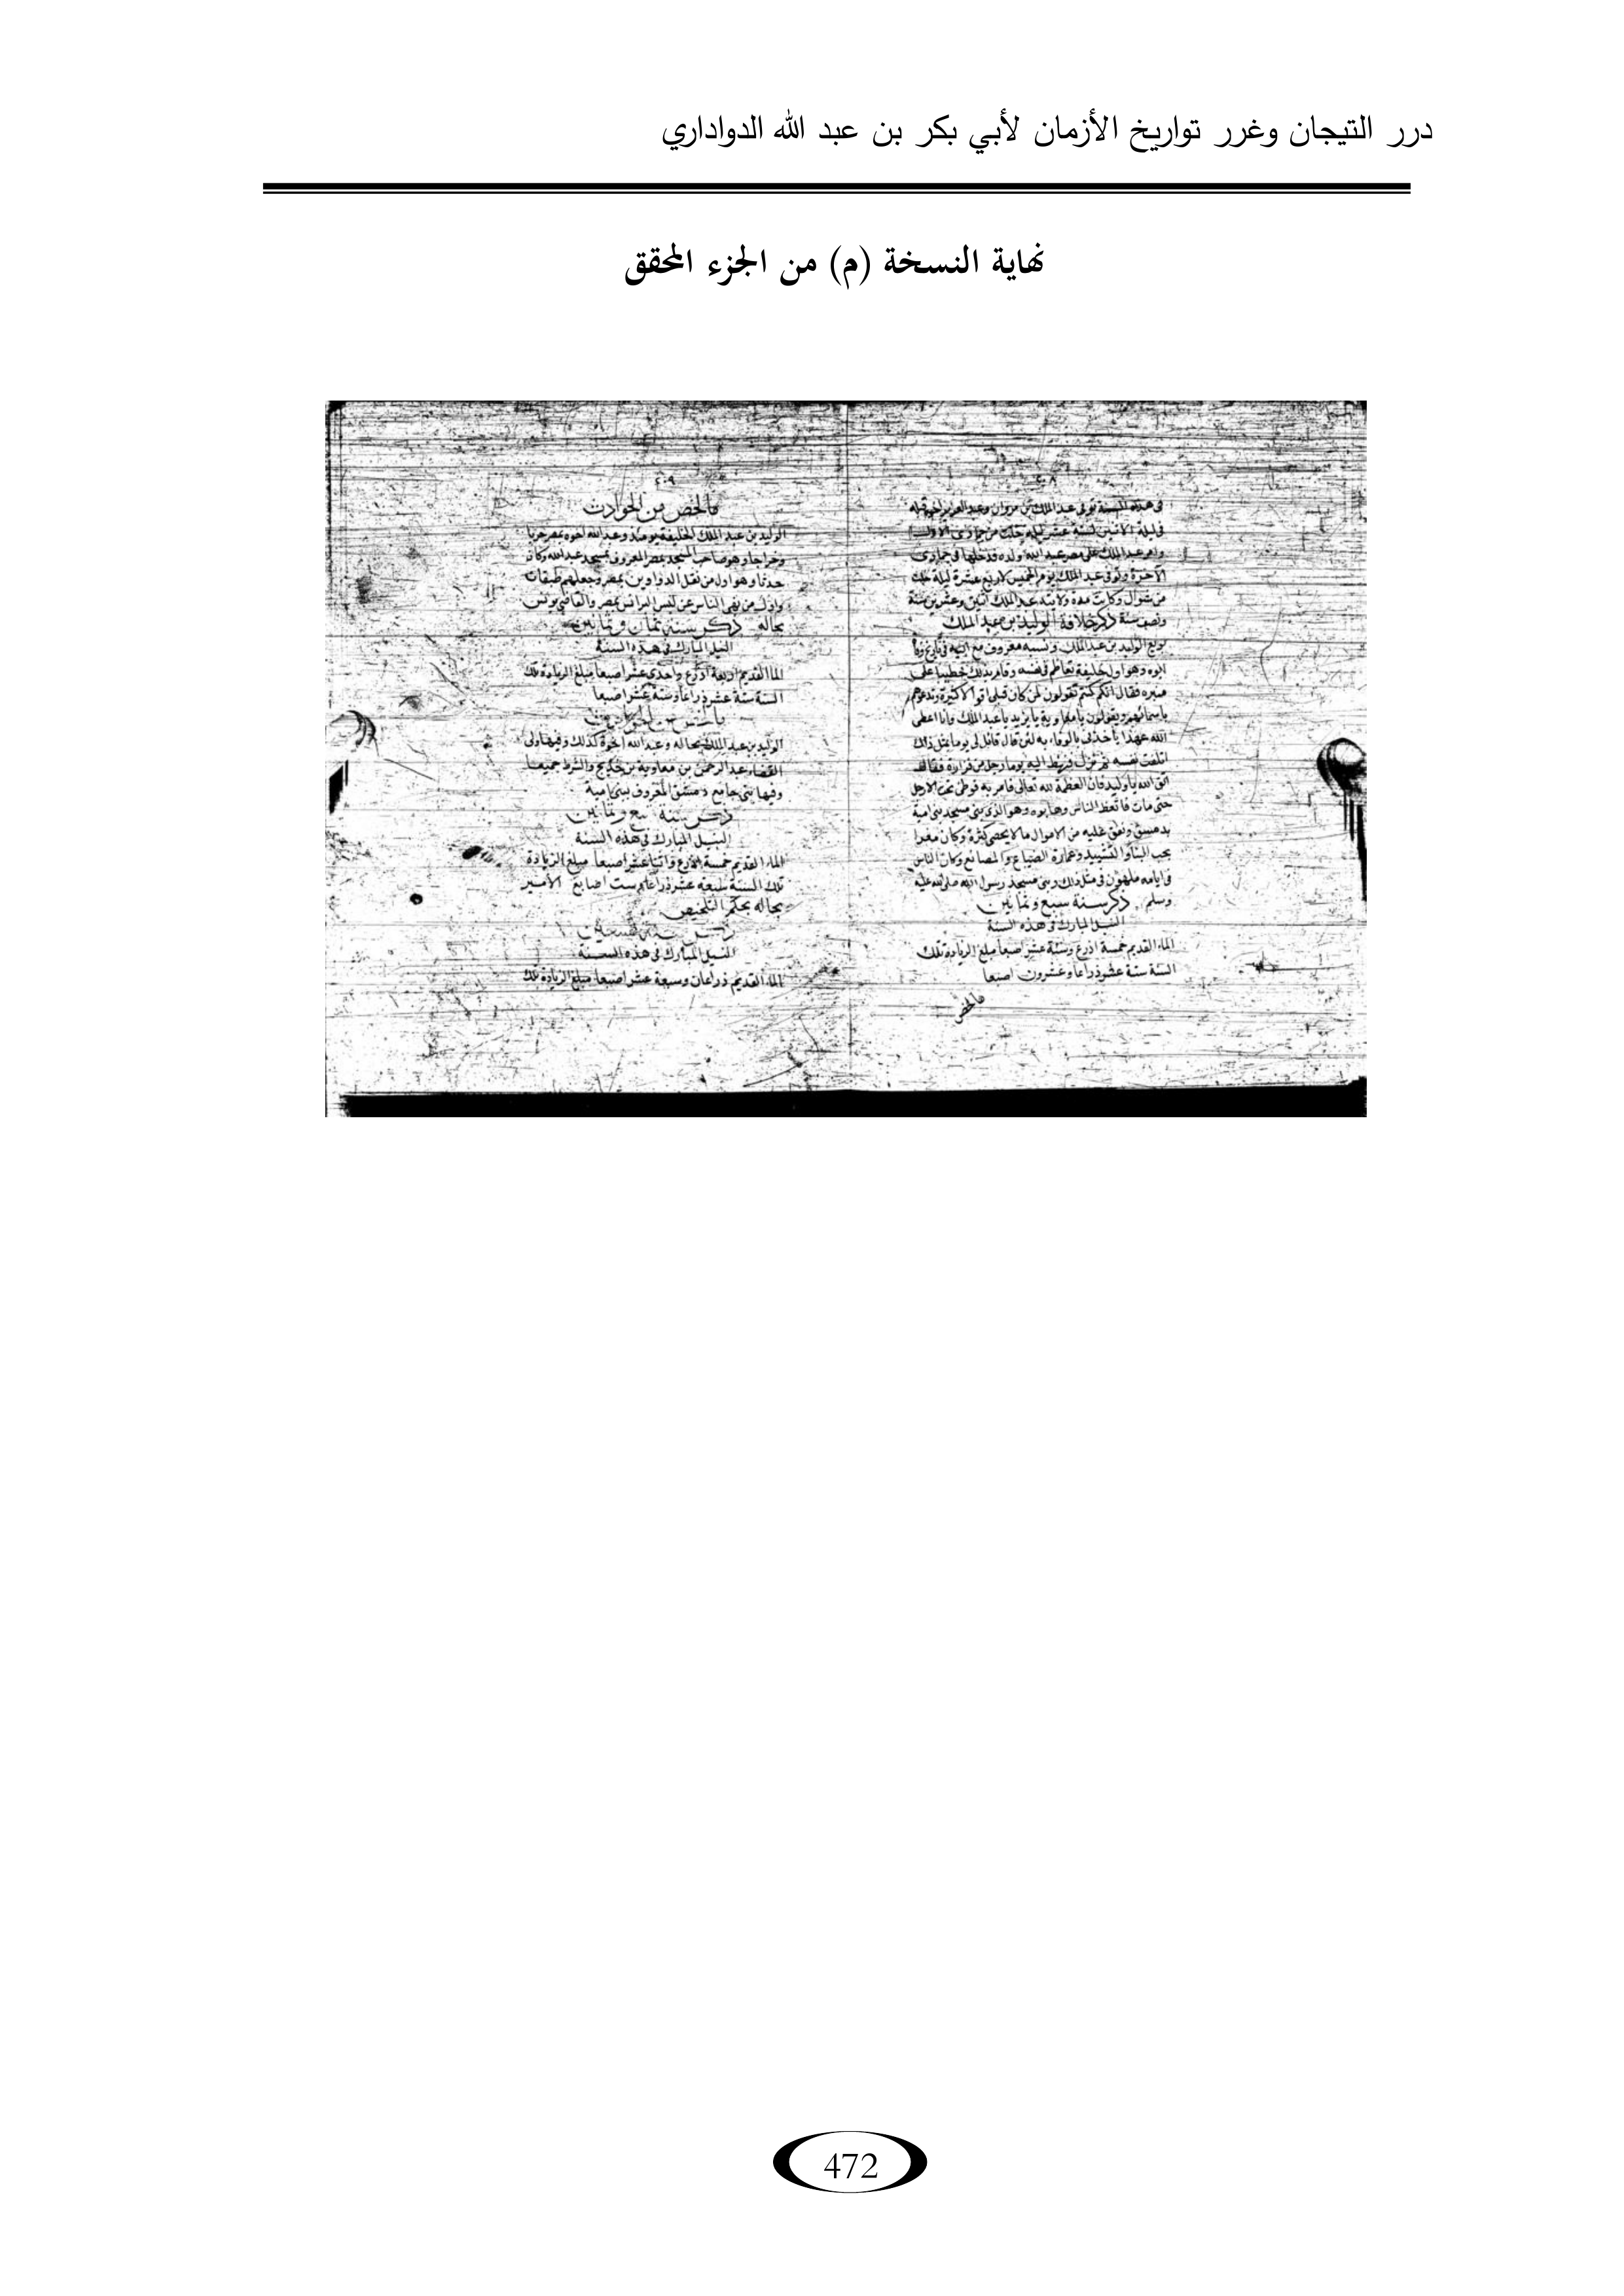 درر التيجان وغرر تواريخ الأزمان لأبي بكر بن عبد الله الدواداري
نهاية النسخة (م) من الجزء المحقق
٤٠٨
فى هذه السنة توفى عبد الملك بن مروان وعبد العزيز اخوه قبله
فى ليلة الاثنين لستة عشر ليلة خلت من جمادى الاولى
وامر عبد الملك على مصر عبد الله ولده فدخلها فى جمادى
الآخرة وتوفى عبد الملك يوم الخميس لاربع عشرة ليلة خلت
من شوال وكانت مدة ولايته عبد الملك اثنين وعشرين سنة
ونصف سنة ذكر خلافة الوليد بن عبد الملك
بويع الوليد بن عبد الملك ونسبه معروف مع ابيه فى تاريخ
ابوه وهو اول خليفة تعاظم فى نفسه وقام بذلك خطيبا على
منبره فقال انكم كنتم تقولون لمن كان قبلى
باسمائهم ويقولون يا معاوية يا يزيد يا عبد الملك وانا اعطى
الله عهدا يأخذنى بالوفاء به لئن قال قائل لى يوما بمثل ذلك
اتلفت نفسه ثم نزل اليه يوما رجل من فزارة فقال
اتق الله يا وليد فان العظمة لله تعالى فامر به فوطى تحت الارجل
حتى مات فاتعظ الناس وهابوه وهو الذى بنى مسجد بنى امية
بدمشق ونفق عليه من الاموال ما لا يحصى كثرة وكان مغرا
بحب البناء والتشييد وعمارة الضياع والمصانع وكان الناس
فى ايامه ملهون فى مثل ذلك وبنى مسجد رسول الله صلى الله عليه
وسلم ذكر سنة سبع وثمانين
النيل المبارك فى هذه السنة
الماء القديم خمسة اذرع وستة عشر اصبعا مبلغ الزيادة تلك
السنة ستة عشر ذراعا وعشرون اصبعا
مالخص
٤٠٩
مالخص من الحوادث
الوليد بن عبد الملك الخليفة يومئذ وعبد الله اخوه بمصر حربا
وخراجا وهو صاحب المسجد بمصر المعروف بمسجد عبد الله وكان
حدثا وهو اول من نقل الدواوين بمصر وجعلهم طبقات
واول من نهى الناس عن لبس البرانس بمصر والقاضى يونس
بحاله ذكر سنة ثمان وثمانين
النيل المبارك فى هذه السنة
الما القديم اربعة اذرع واحدى عشر اصبعا مبلغ الزيادة تلك
السنة ستة عشر ذراعا وستة عشر اصبعا
الوليد بن عبد الملك بحاله وعبد الله اخوه كذلك وفيها ولى
القضاء عبد الرحمن بن معاوية بن خديج والشرط جميعا
وفيها بنى جامع دمشق المعروف ببنى امية
ذكر سنة تسع وثمانين
النيل المبارك فى هذه السنة
الماء القديم خمسة اذرع واثنا عشر اصبعا مبلغ الزيادة
تلك السنة سبعة عشر ذراعا وست اصابع الأمير
بحاله بحكم التلخيص
ذكر سنة تسعين
النيل المبارك فى هذه السنة
الماء القديم ذراعان وسبعة عشر اصبعا مبلغ الزيادة تلك
472